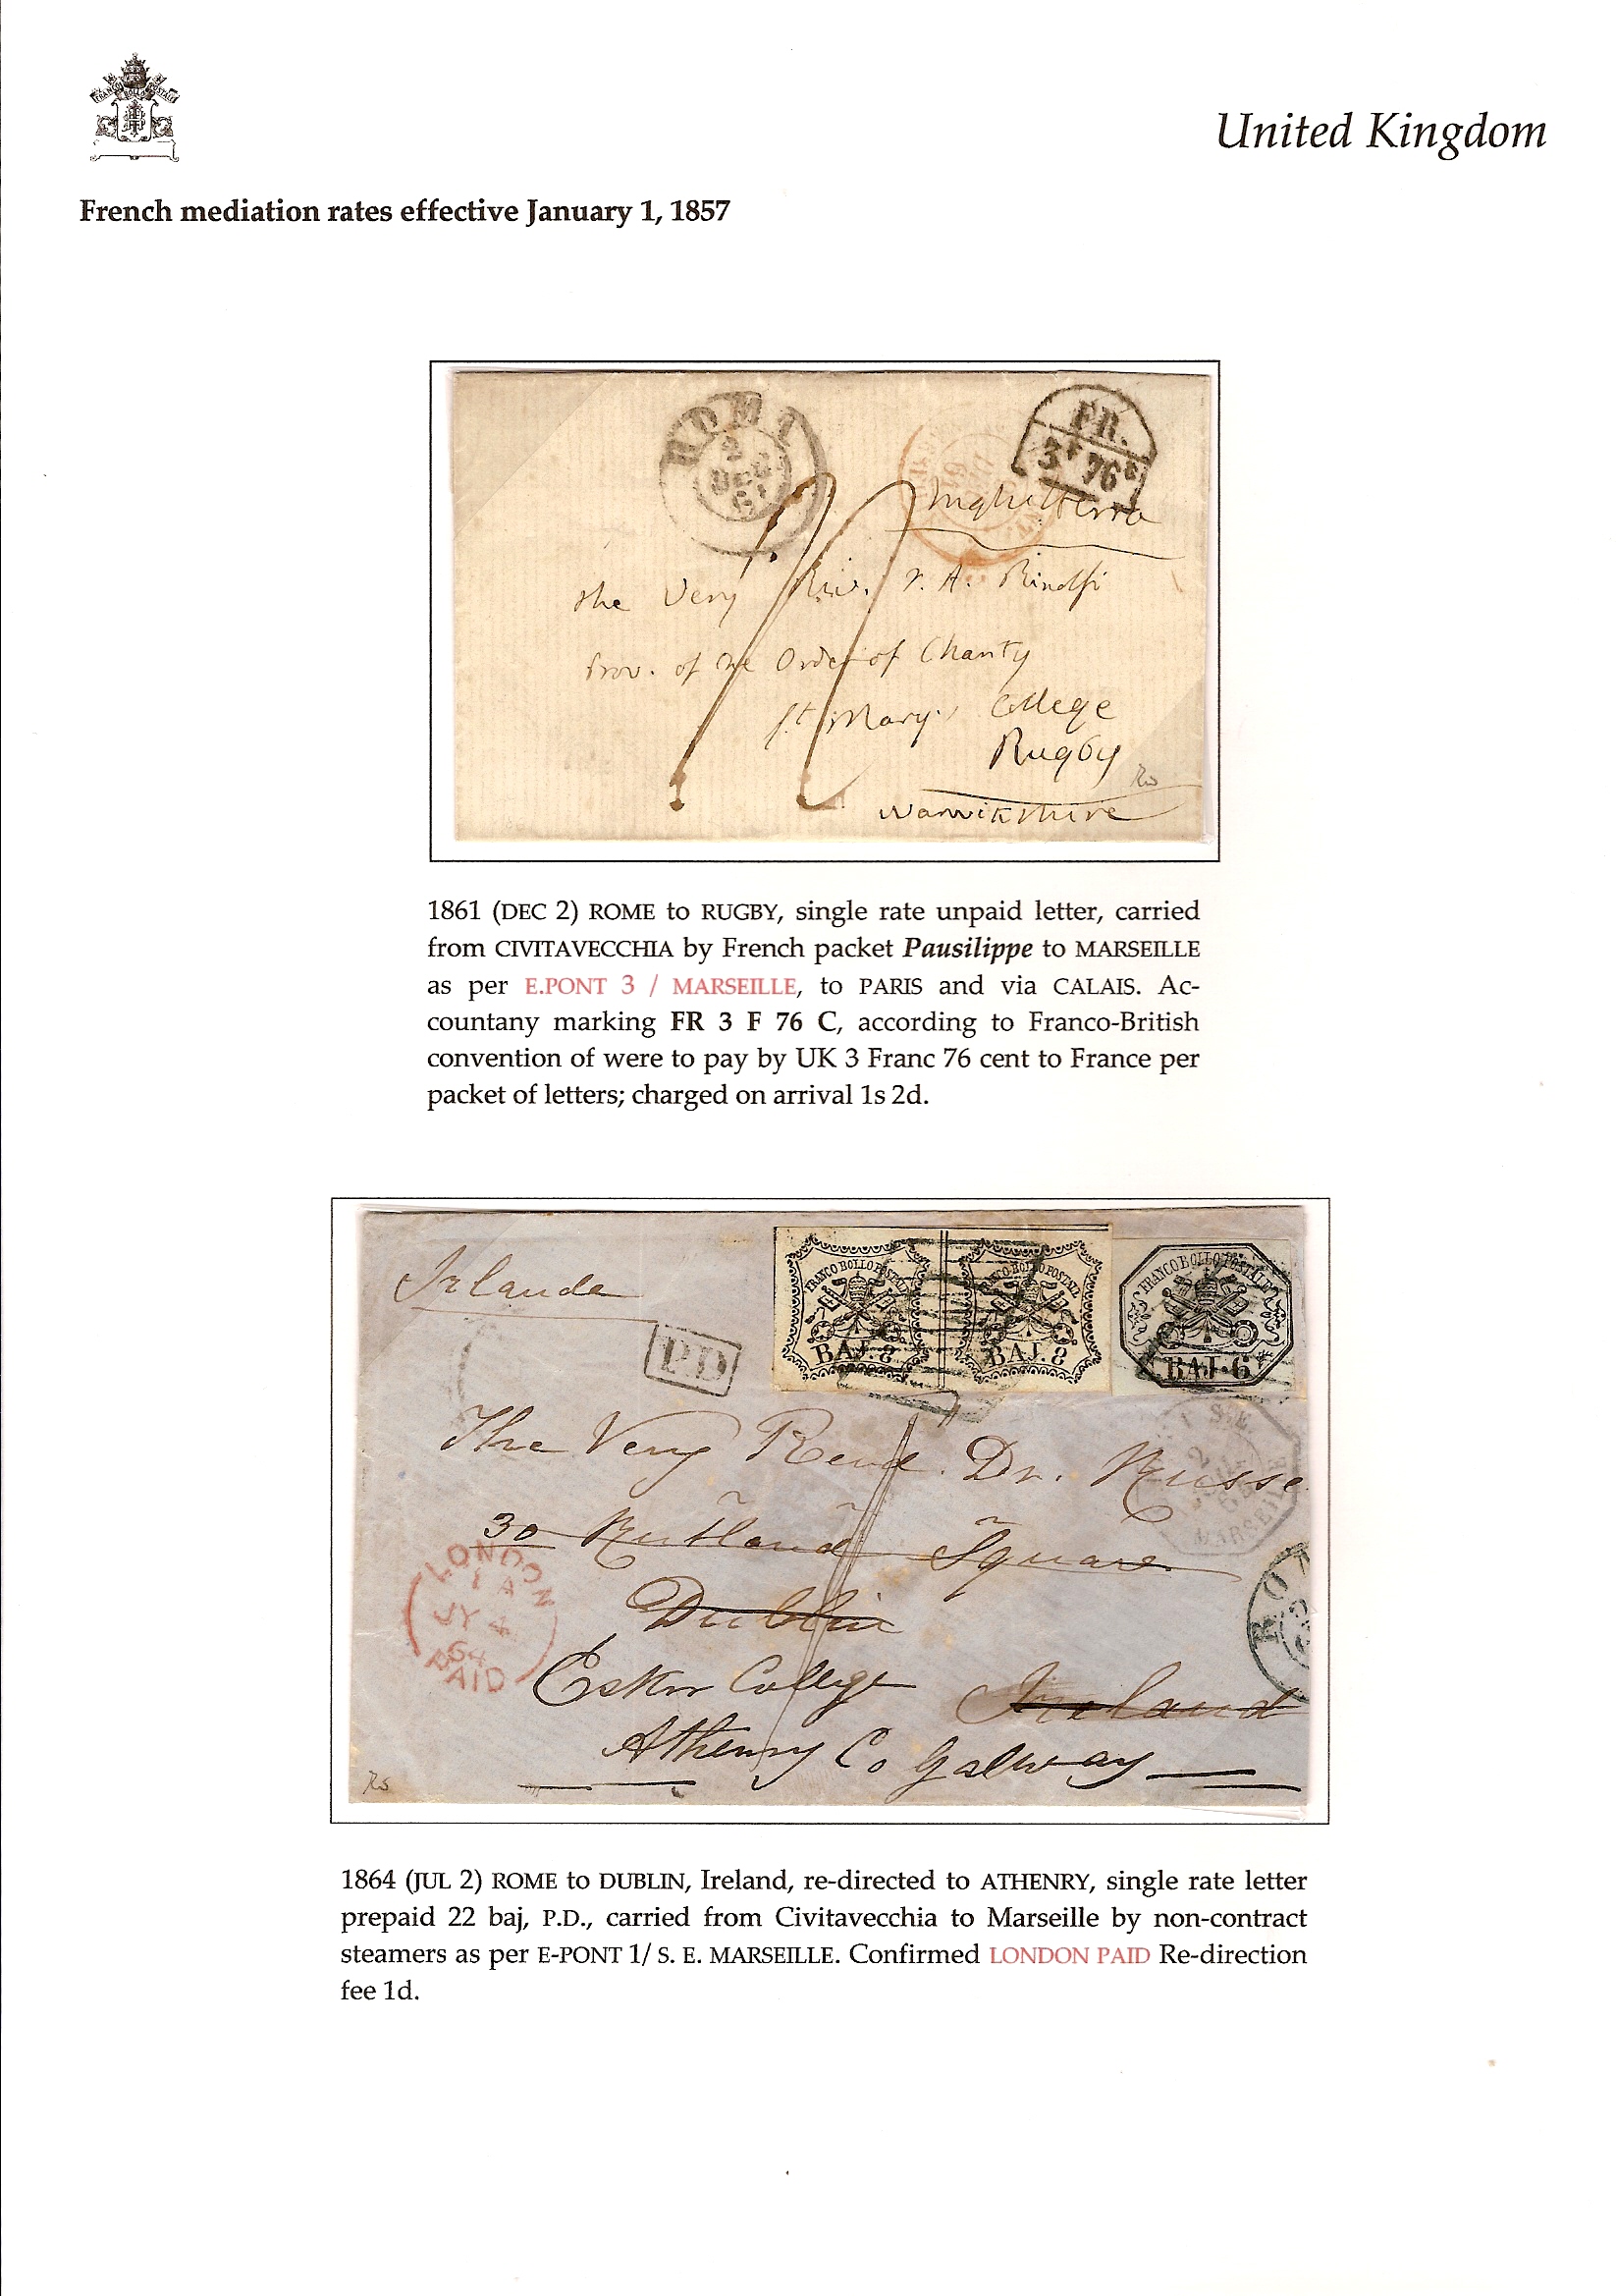 United Kingdom
French mediation rates effective January 1, 1857
ROMA
2
DEC
61
FR.
3F 76C
Inghilterra
The Very Rev. F. A. Rinolfi
Prov. of the Order of Charity
St Mary's College
Rugby
Rs
Warwikshire
1861 (DEC 2) ROME to RUGBY, single rate unpaid letter, carried
from CIVITAVECCHIA by French packet Pausilippe to MARSEILLE
as per E.PONT 3 / MARSEILLE, to PARIS and via CALAIS. Ac-
countany marking FR 3 F 76 C, according to Franco-British
convention of were to pay by UK 3 Franc 76 cent to France per
packet of letters; charged on arrival 1s 2d.
FRANCO BOLLO POSTALE
BAJ. 8
FRANCO BOLLO POSTALE
BAJ. 8
FRANCO BOLLO POSTALE
BAJ. 6
Irlanda
PD
The Very Revd. Dr. Russe
S.E.
2
MARSEILLE
30 Rutland Square
LONDON
1 A
JY 4
64
PAID
Dublin
RO
Esker College
Ireland
Athenry Co Galway
Rs
1864 (JUL 2) ROME to DUBLIN, Ireland, re-directed to ATHENRY, single rate letter
prepaid 22 baj, P.D., carried from Civitavecchia to Marseille by non-contract
steamers as per E-PONT 1/ S. E. MARSEILLE. Confirmed LONDON PAID Re-direction
fee 1d.